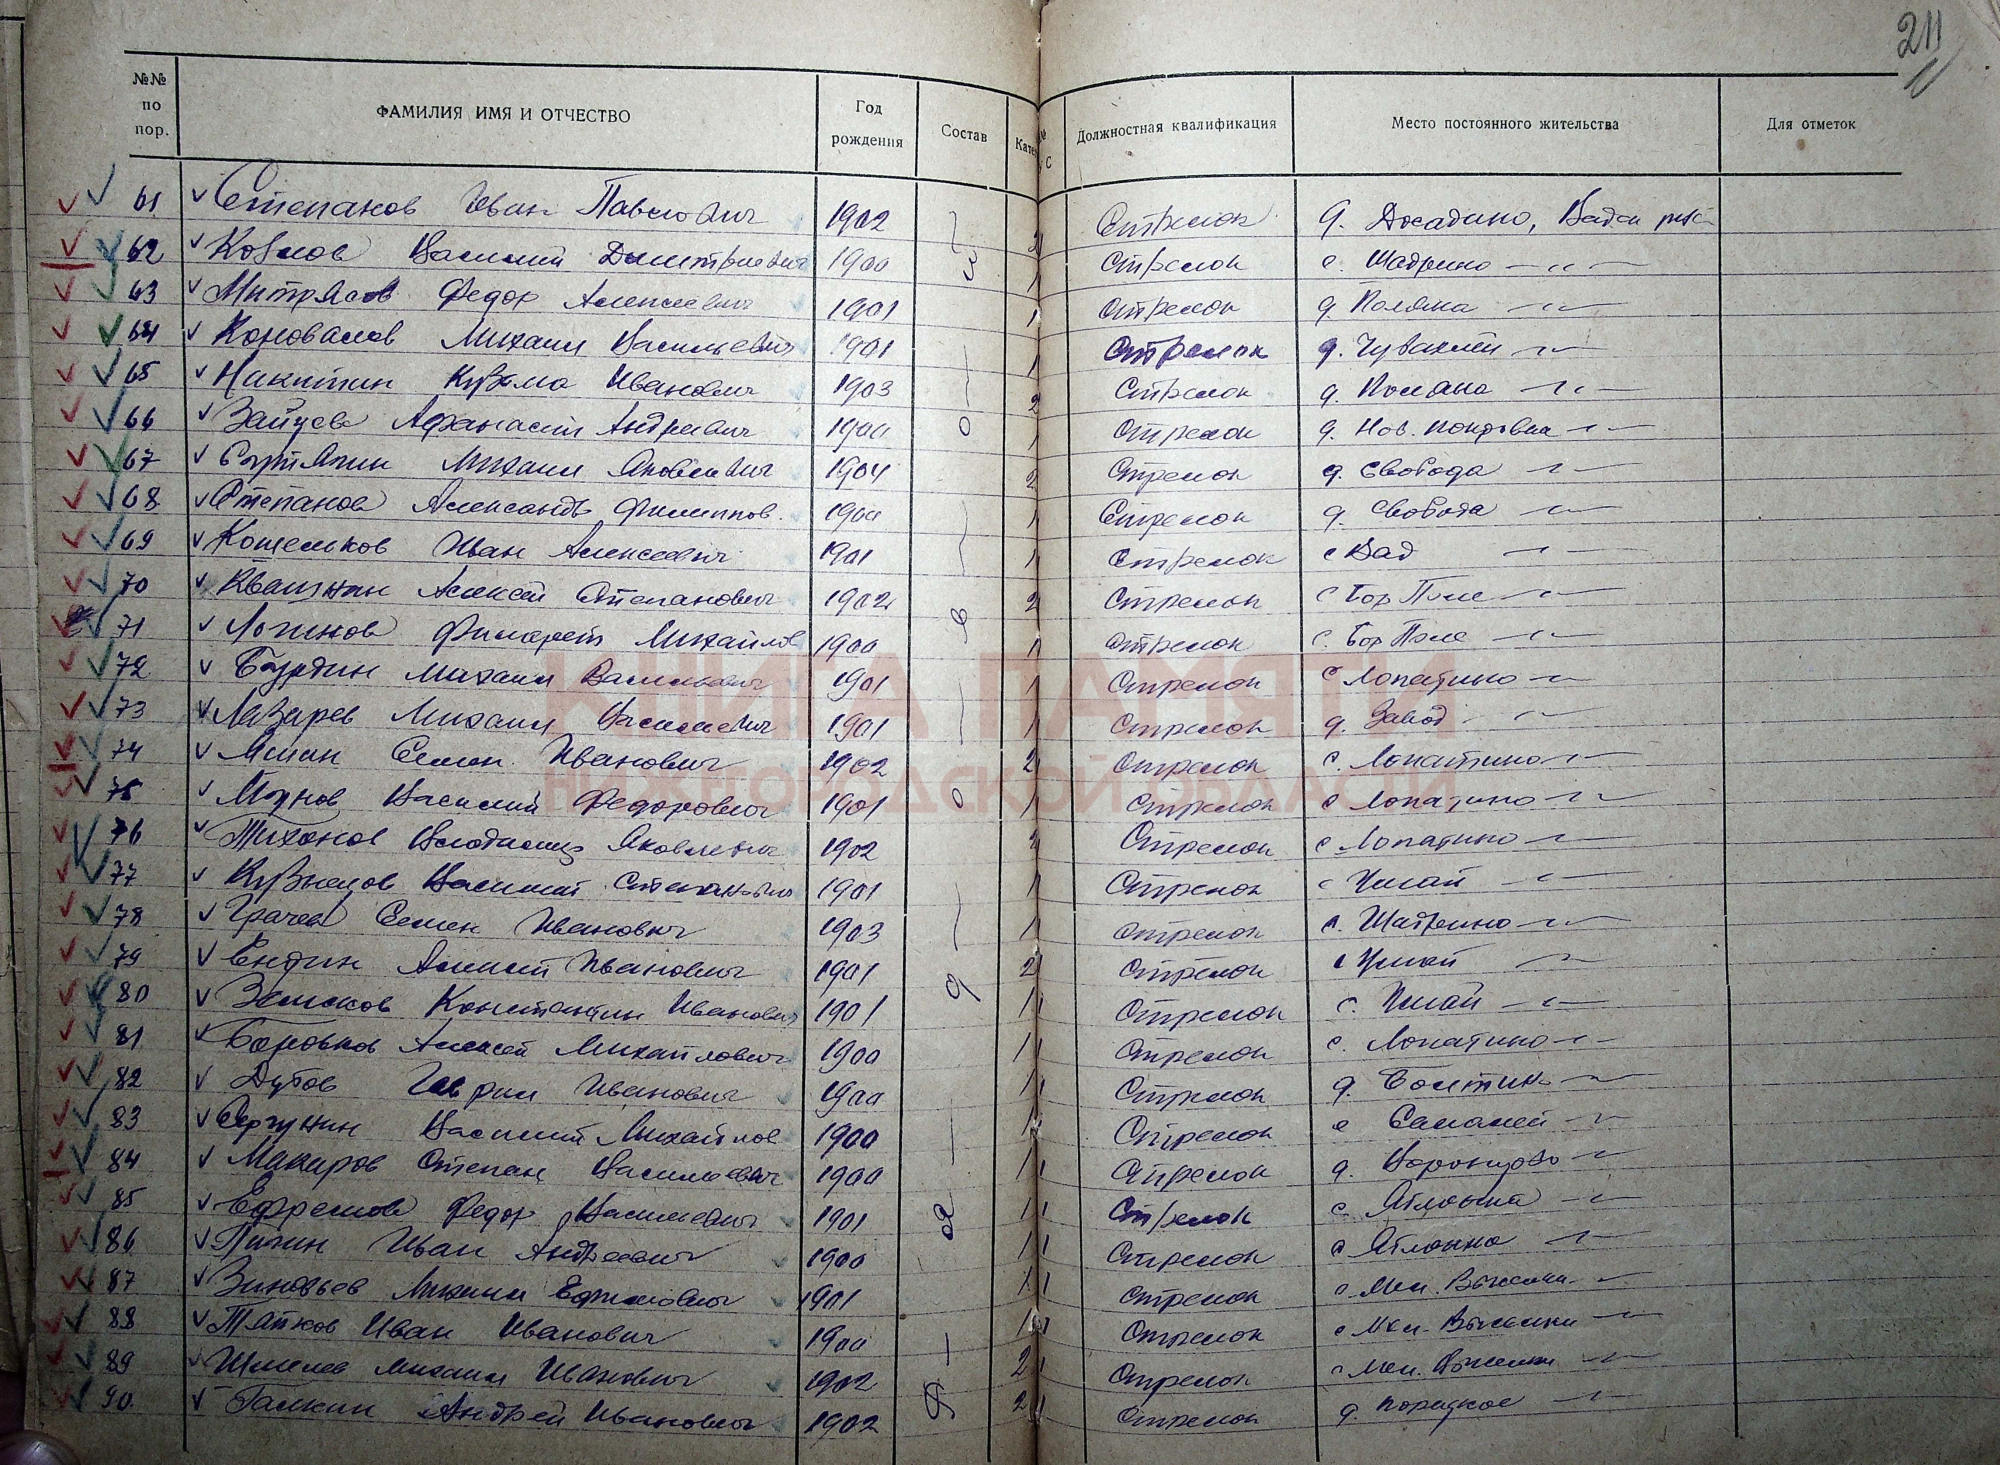 211
№№ по пор. ФАМИЛИЯ ИМЯ И ОТЧЕСТВО Год рождения Состав Должностная квалификация Место постоянного жительства Для отметок
61 Степанов Иван Павлович 1902 Стрелок д. Досадино, Вадск
62 Козлов Василий Дмитриевич 1900 Стрелок с. Шадрино -"-
63 Митрясов Федор Алексеевич 1901 1 Стрелок д. Поляна -"-
64 Коновалов Михаил Васильевич 1901 1 Стрелок д. Чувахлей -"-
65 Никитин Кузьма Иванович 1903 2 Стрелок д. Поляна -"-
66 Зайцев Афанасий Андреевич 1900 1 Стрелок д. Нов. Покровка -"-
67 Михаил Яковлевич 1904 2 Стрелок д. Свобода -"-
68 Степанов Александр Филиппов. 1900 1 Стрелок д. Свобода -"-
69 Кошельков Иван Алексеевич 1901 1 Стрелок с Вад -"-
70 Квашнин Алексей Степанович 1902 2 Стрелок с Бор Поле -"-
71 Логинов Филарет Михайлов 1900 1 Стрелок с. Бор Поле -"-
72 Бурдин Михаил Васильевич 1901 1 Стрелок с Лопатино -"-
73 Лазарев Михаил Васильевич 1901 1 Стрелок д. Завод -"-
74 Семен Иванович 1902 2 Стрелок с. Лопатино -"-
75 Василий Федорович 1901 1 Стрелок с Лопатино -"-
76 Тихонов Владимир Яковлевич 1902 2 Стрелок с Лопатино -"-
77 Кузнецов Василий Степанович 1901 1 Стрелок с Умай -"-
78 Грачев Семен Иванович 1903 1 Стрелок с. Шадрино -"-
79 Ендин Алексей Иванович 1901 2 Стрелок с Умай -"-
80 Земсков Константин Иванович 1901 1 Стрелок с. Умай -"-
81 Боровков Алексей Михайлович 1900 1 Стрелок с. Лопатино -"-
82 Дубов Гаврил Иванович 1900 1 Стрелок д. -"-
83 Сергунин Василий Михайлов 1900 1 Стрелок с -"-
84 Макаров Степан Васильевич 1900 1 Стрелок д. Воронцово -"-
85 Ефремов Федор Васильевич 1901 1 Стрелок с -"-
86 Пигин Иван Андреевич 1900 1 Стрелок с -"-
87 Зиновьев Михаил Ефимович 1901 1 Стрелок с -"-
88 Тяпков Иван Иванович 1900 1 Стрелок с -"-
89 Шмелев Михаил Иванович 1902 2 Стрелок с -"-
90. Галкин Андрей Иванович 1902 2 Стрелок д. Порецкое -"-
КНИГА ПАМЯТИ
НИЖЕГОРОДСКОЙ ОБЛАСТИ